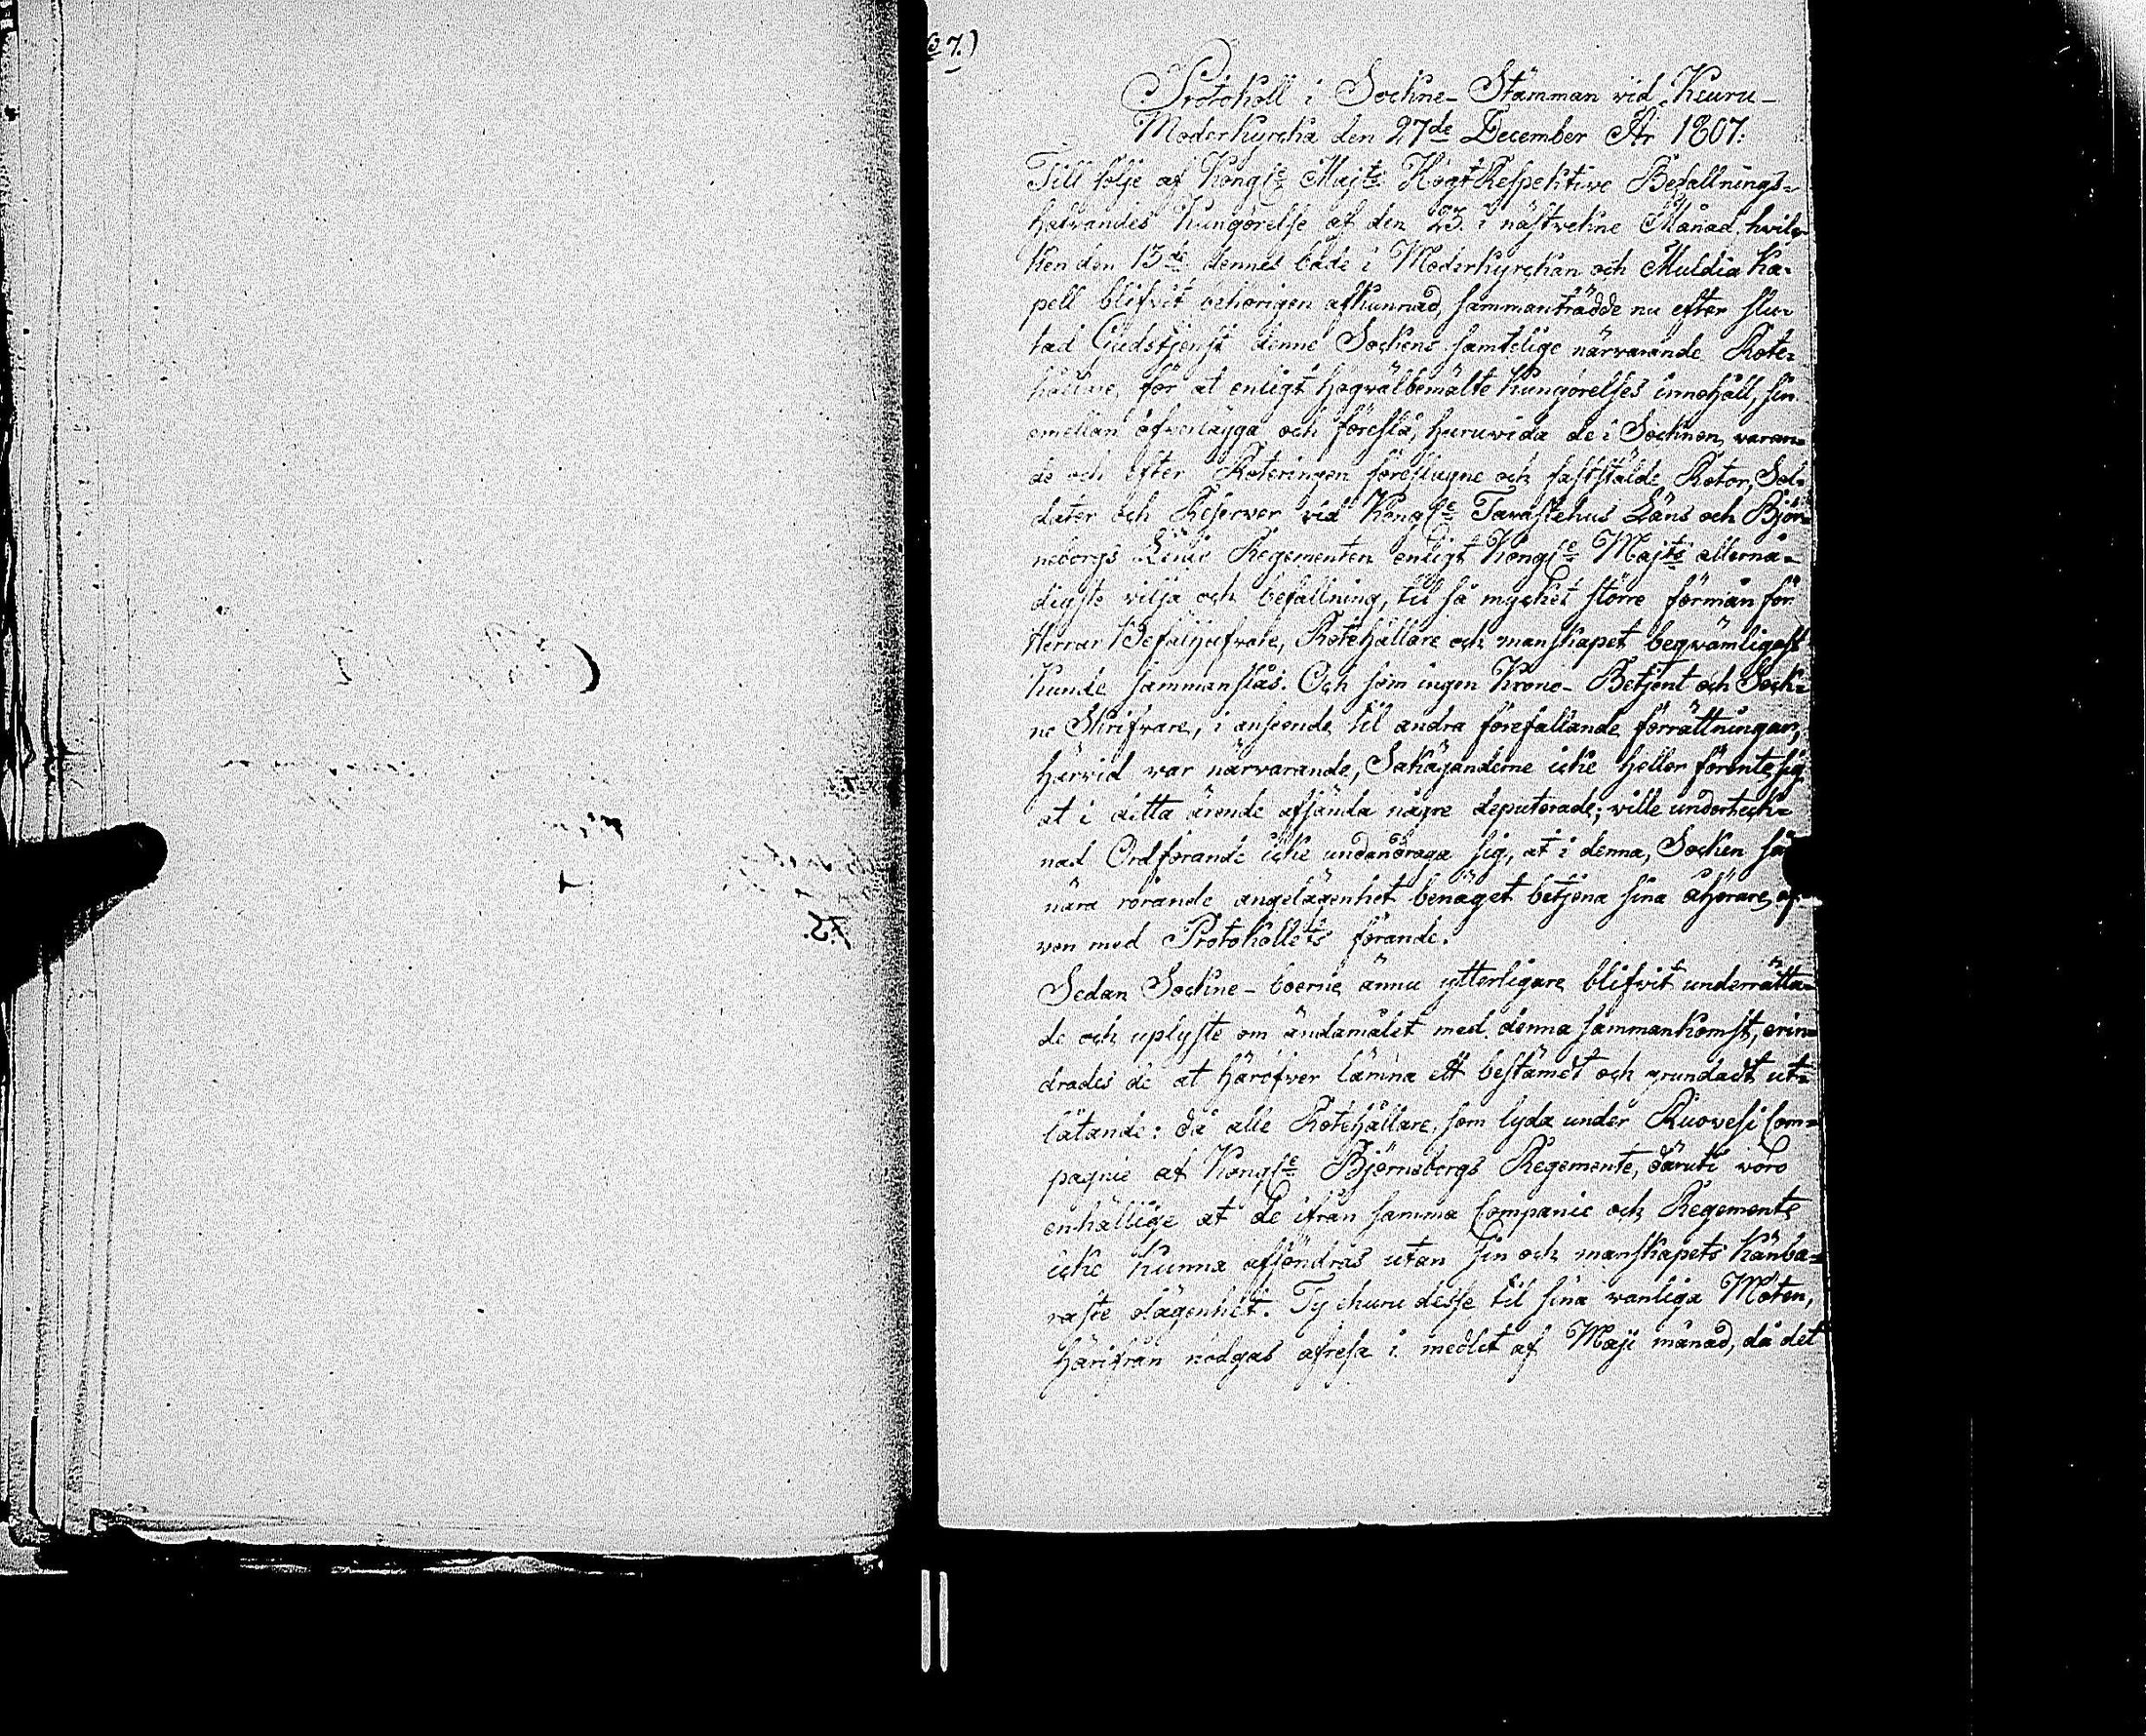 37.)
Protokoll i Sockne-Stämman vid Keuru-
Moderkyrcka den 27de December År 1807:
Till följe af Kongl:e Maj:ts HögtRespektive Befallnings-
hafvandes Kungörelse af den 23. i nästvekne Månad, hvil-
ken den 13de dennes både i Moderkyrckan och Muldia Ka-
pell blifvit behörigen afkunnad, sammanträdde nu efter slu-
tad Gudstjenst denne Sockens samtelige närvarande Rote-
hållare, för at enligt högvälbemälte Kungörelses innehåll, sin
emellan öfverlägga och föreslå, huruvida de i Socknen varan-
de och efter Roteringen föreslagne och fastställde Rotor, Sol-
dater och Reserver vid Kongl:e Tavastehus Läns och Björ-
neborgs Läns Regementen enligt Kongl:e Maj:ts allernå-
digste vilja och befallning, til så mycket större förmån för
Herrar Befälhafvare, Rotehållare och manskapet beqvämligast
kunde sammanslås. Och som ingen Krono-Betjent och Sock-
ne Skrifvare, i anseende til andra förefallande förrättningar,
härvid var närvarande, Sakäganderne icke heller förente sig
at i detta ärende afsända någre deputerade; ville underteck-
nad Ordförande icke undandraga sig, at i denna, Socken så
nära rörande angelägenhet benäget betjena sina åhörare, äf-
ven med Protokollets förande.
Sedan Sockne-boerne ännu ytterligare blifvit underrätta-
de och uplyste om ändamålet med denna sammankomst, erin-
drades de at häröfver lämna ett bestämdt och grundadt ut-
låtande: då alle Rotehållare, som lyda under Ruovesi Com-
pagnie af Kongl:e Björneborgs Regemente, däruti voro
enhällige at de ifrån samma Companie och Regemente
icke kunna afsöndras utan sin och manskapets känba-
raste olägenhet. Ty ehuru desse til sina vanliga Möten,
härifrån nödgas afresa i medlet af Maji månad, då det